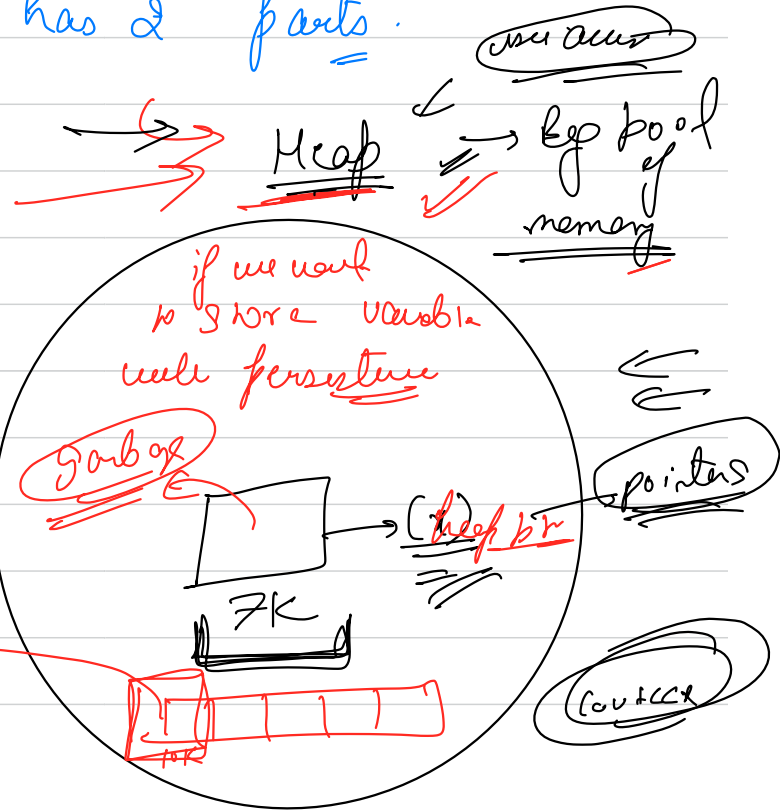 has 2 parts.
user access
Heap → Big pool
of
memory
if we want
to store variable
with persistence
garbage
pointers
(x)
heap ptr
7K
10K